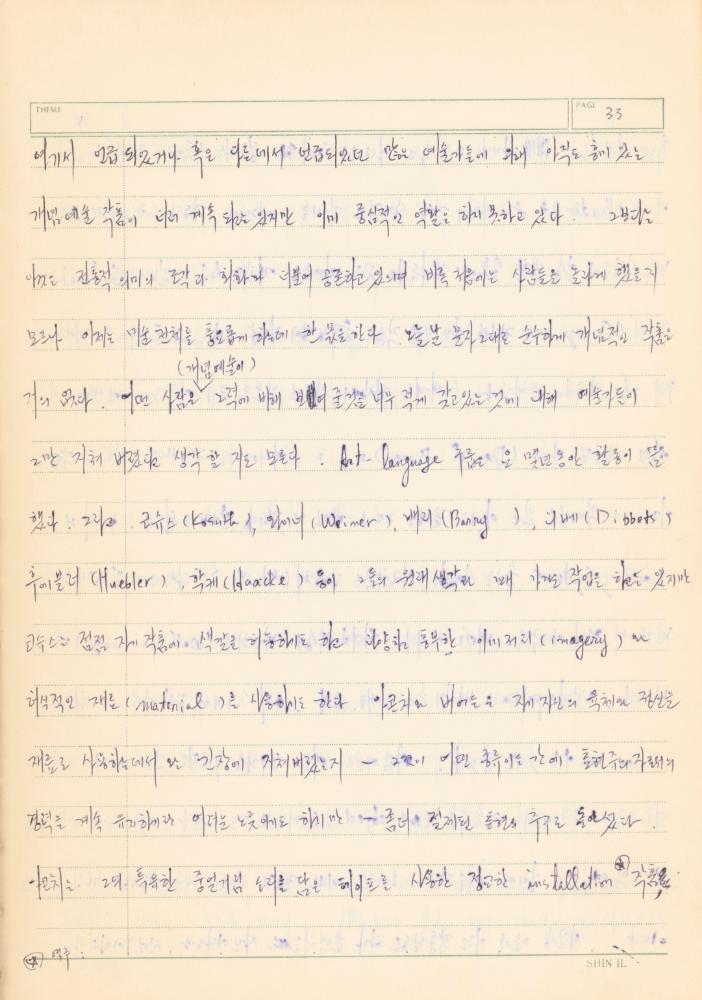 THEME
PAGE 33
여기서 언급되었거나 혹은 다른데서 언급되었던 많은 예술가들에 의해 아직도 흥미 있는
개념예술 작품이 더러 계속되고는 있지만 이미 중심적인 역할은 하지 못하고 있다. 그보다는
이것은 전통적 의미의 조각과 회화와 더불어 공존하고 있으며 비록 처음에는 사람들을 놀라게 했을지
모르나 이제는 미술 전체를 풍요롭게 하는데 한 몫을 한다. 오늘날 문자 그대로 순수하게 개념적인 작품은
(개념예술이)
거의 없다. 어떤 사람은 노력에 비해 보여줄것을 너무 적게 갖고있는 것에 대해 예술가들이
그만 지쳐 버렸다고 생각할 지도 모른다. Art-language 그룹은 요 몇년동안 활동이 뜸
했다. 그리고 코슈스(Kosuth), 와이너(Weiner), 배리(Barry), 디베(Dibbets)
후에블러(Huebler), 학케(Haacke) 등이 그들의 원래 생각과 가까운 작업을 하고는 있지만
코슈스는 점점 자기 작품에 색깔을 허용하기도 하고 다양하고 풍부한 이미져리(imagery)와
지식적인 재료(material)를 사용하기도 한다. 아콘치와 버어든은 자기 자신의 육체와 정신을
재료로 사용하는데서 온 긴장에 지쳐버렸는지 — 그것이 어떤 종류이든 간에 표현주의자로서의
경력을 계속 유지하기란 어려운 노릇이기도 하지만 — 좀더 절제된 표현의 추구로 돌아섰다.
아콘치는 그의 특유한 중얼거림 소리를 담은 테이프를 사용한 정교한 installation ※ 작품을
※ 역주:
SHIN IL